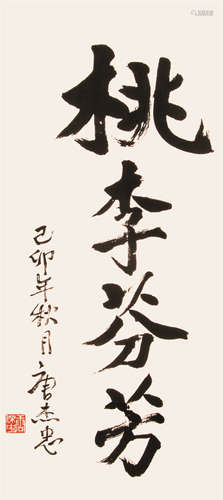 桃李芬芳
己卯年秋月唐杰忠